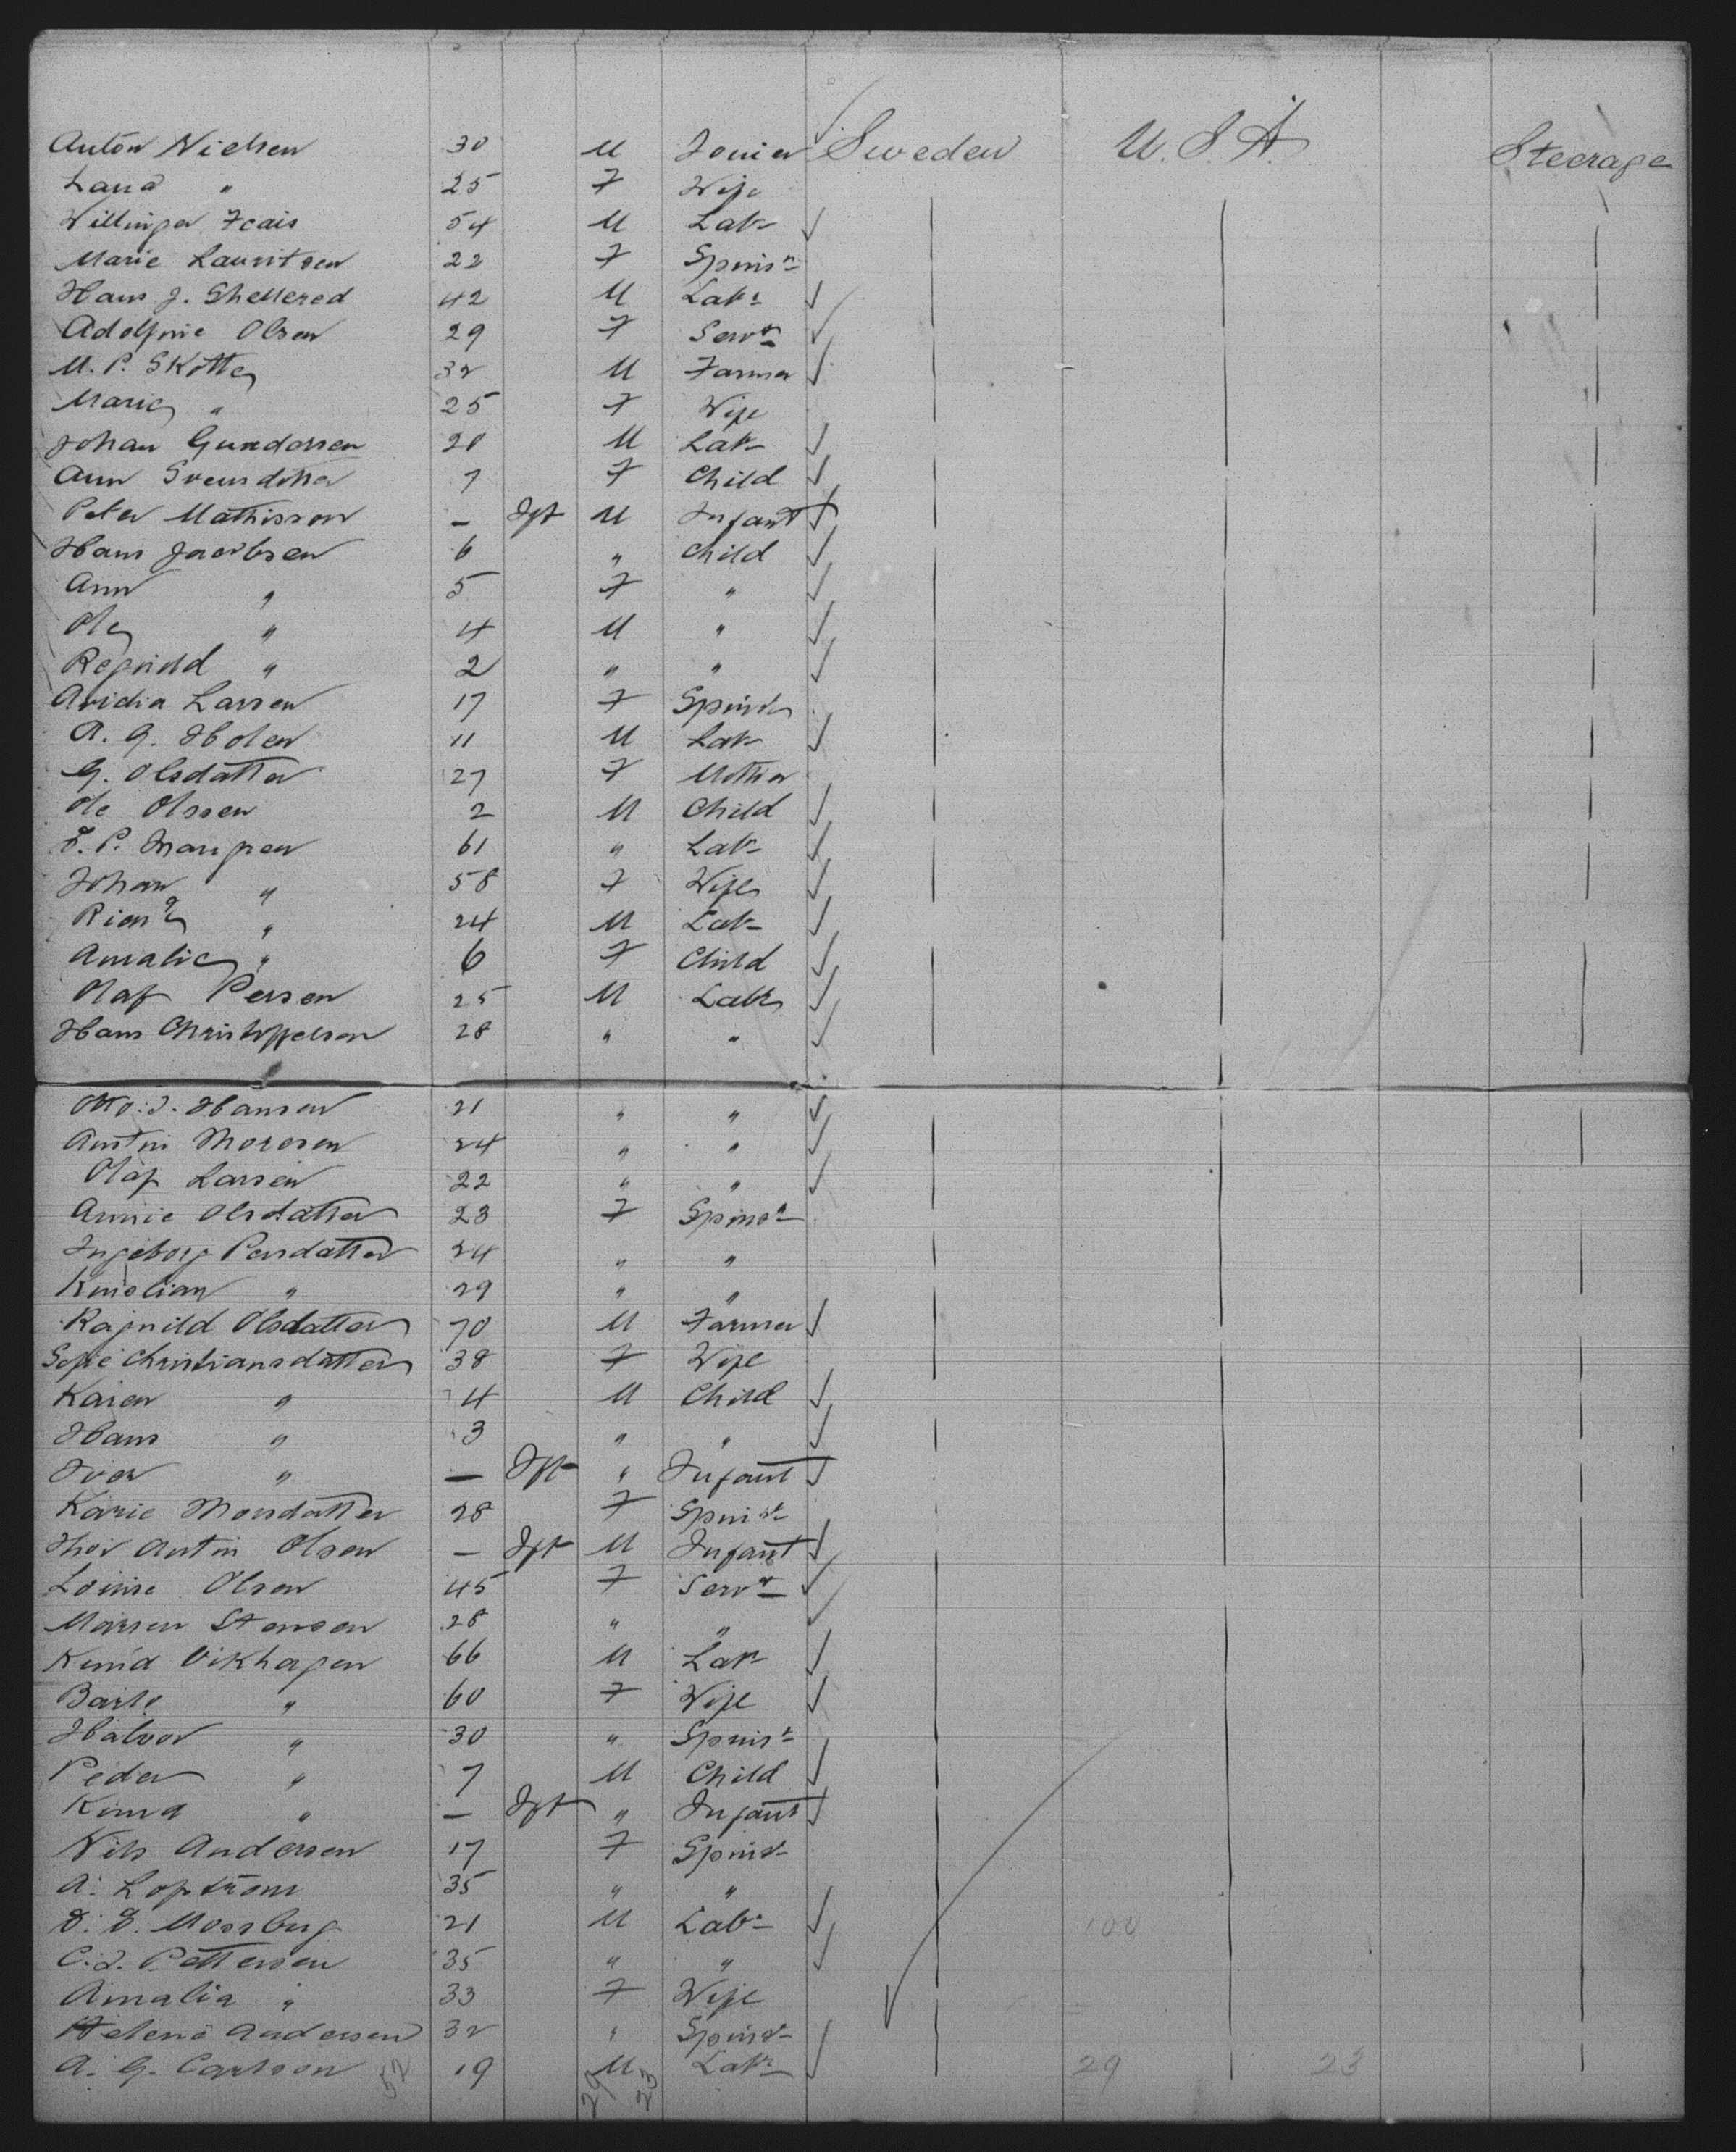 Anton Nielsen 30 M Joiner Sweden U.S.A. Steerage
Laura " 25 F Wife
54 M Labr
Marie Lauritsen 22 F Spinsr
Hans J. Shellered 42 M Labr
Adolfine Olsen 29 F Servt
M. P. Skotte 32 M Farmer
Marie " 25 F Wife
Johan Gundersen 20 M Labr
Ann Svendotter 7 F Child
Peter Mathisson — Inft M Infant
Hans Jacobsen 6 " Child
Ann " 5 F "
Ole " 4 M "
Regnild " 2 " "
Larsen 17 F Spinstr
A. G. Holen 11 M Labr
G. Olsdatter 27 F Mother
Ole Olssen 2 M Child
61 " Labr
Johan " 58 F Wife
" 24 M Labr
Amalie " 6 F Child
Olaf Persen 25 M Labr
Hans Christoffelson 28 " "
Otto J. Hansen 21 " "
Austin Thoresen 24 " "
Olaf Larsen 22 " "
Annie Olsdatter 23 F Spinsr
Ingeborg Persdatter 24 " "
" 29 " "
Ragnild Olsdatter 70 M Farmer
Sofie Christiansdatter 38 F Wife
Karen " 4 M Child
Hans " 3 " "
Iver " — Inft " Infant
Karie Monsdatter 28 F Spinstr
Thor Antin Olsen — Inft M Infant
Louise Olsen 45 F Servt
Stensen 28 " "
Knud Vikhagen 66 M Labr
" 60 F Wife
Halvor " 30 " Spinsr
Peder " 7 M Child
Knud " — Inft " Infant
Nils Andersen 17 F Spinstr
A. Lofstrom 35 " "
Mossberg 21 M Labr 100
C. J. Pettersen 35 " "
Amalia " 33 F Wife
Helene Andersen 32 " Spinstr
A. G. Carlson 52 19 M Labr 29 23
29 23